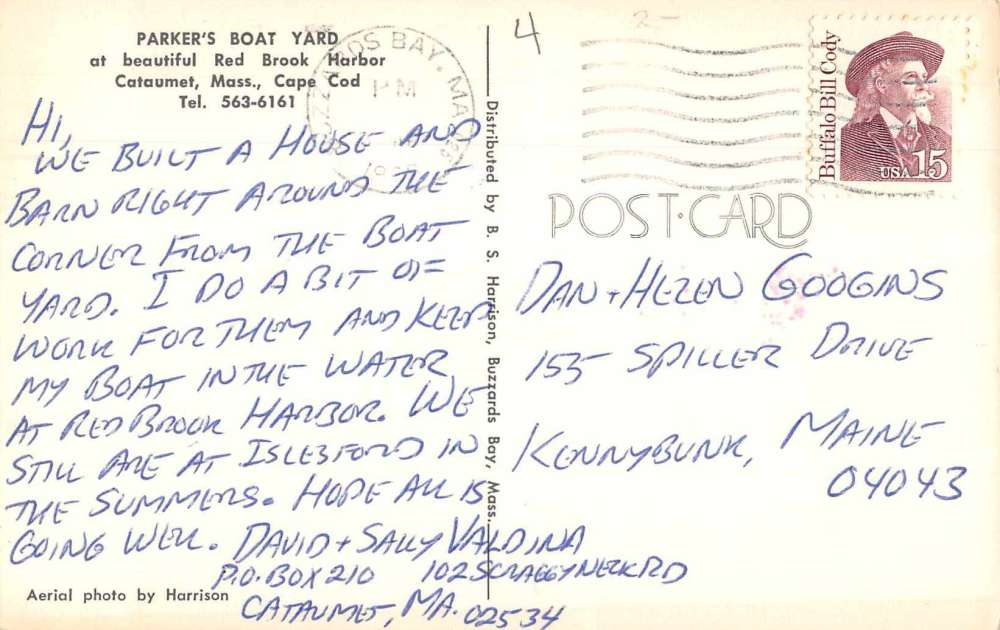 PARKER'S BOAT YARD
at beautiful Red Brook Harbor
Cataumet, Mass., Cape Cod
Tel. 563-6161
HI,
WE BUILT A HOUSE AND
BARN RIGHT AROUND THE
CORNER FROM THE BOAT
YARD. I DO A BIT OF
WORK FOR THEM AND KEEP
MY BOAT IN THE WATER
AT RED BROOK HARBOR. WE
STILL ARE AT ISLESFORD IN
THE SUMMERS. HOPE ALL IS
GOING WELL. DAVID + SALLY VALDINA
P.O. BOX 210 102 SCRAGGY NECK RD
CATAUMET, MA. 02534
Aerial photo by Harrison
Distributed by B. S. Harrison, Buzzards Bay, Mass.
BUZZARDS BAY, MA
PM
4
2-
Buffalo Bill Cody
USA 15
POST CARD
DAN + HELEN GOOGINS
155 SPILLER DRIVE
KENNYBUNK, MAINE
04043